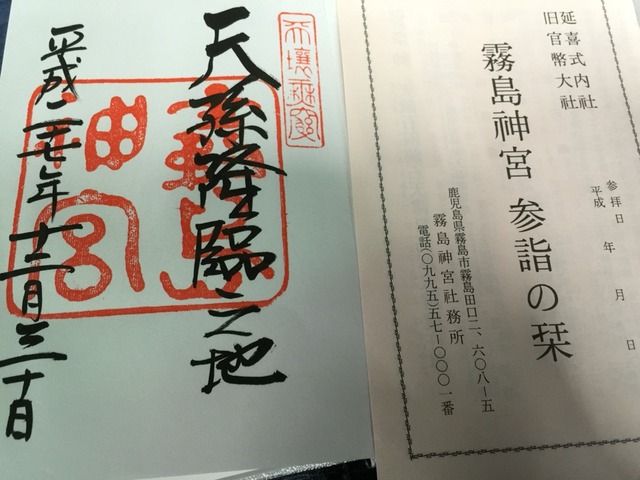 延喜式内社
旧官幣大社
霧島神宮 参詣の栞
参拝日
平成 年 月 日
鹿児島県霧島市霧島田口二、六〇八ー五
霧島神宮社務所
電話(〇九九五)五七ー〇〇〇一番
天壌無窮
天孫降臨之地
霧島
神宮
平成二十七年十二月三十日